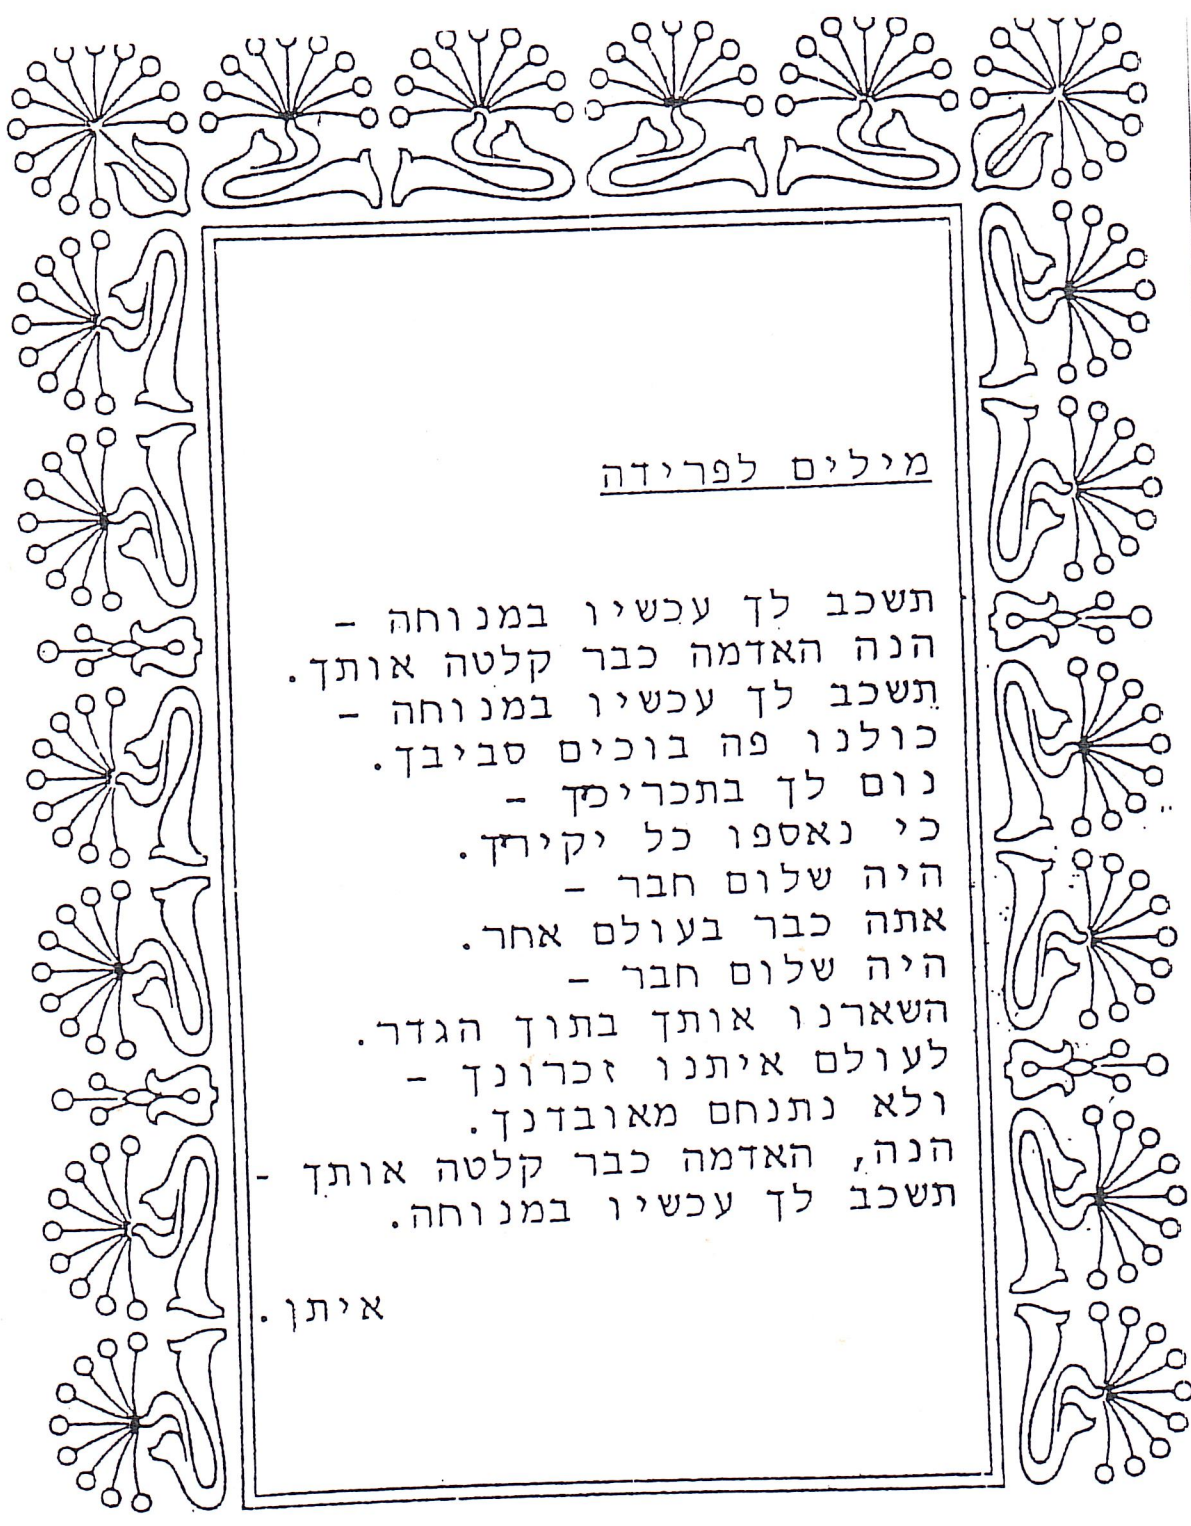 מילים לפרידה
תשכב לך עכשיו במנוחה -
הנה האדמה כבר קלטה אותך.
תשכב לך עכשיו במנוחה -
כולנו פה בוכים סביבך.
נום לך בתכריכיך -
כי נאספו כל יקיריך.
היה שלום חבר -
אתה כבר בעולם אחר.
היה שלום חבר -
השארנו אותך בתוך הגדר.
לעולם איתנו זכרונך -
ולא נתנחם מאובדנך.
הנה, האדמה כבר קלטה אותך -
תשכב לך עכשיו במנוחה.
איתן.